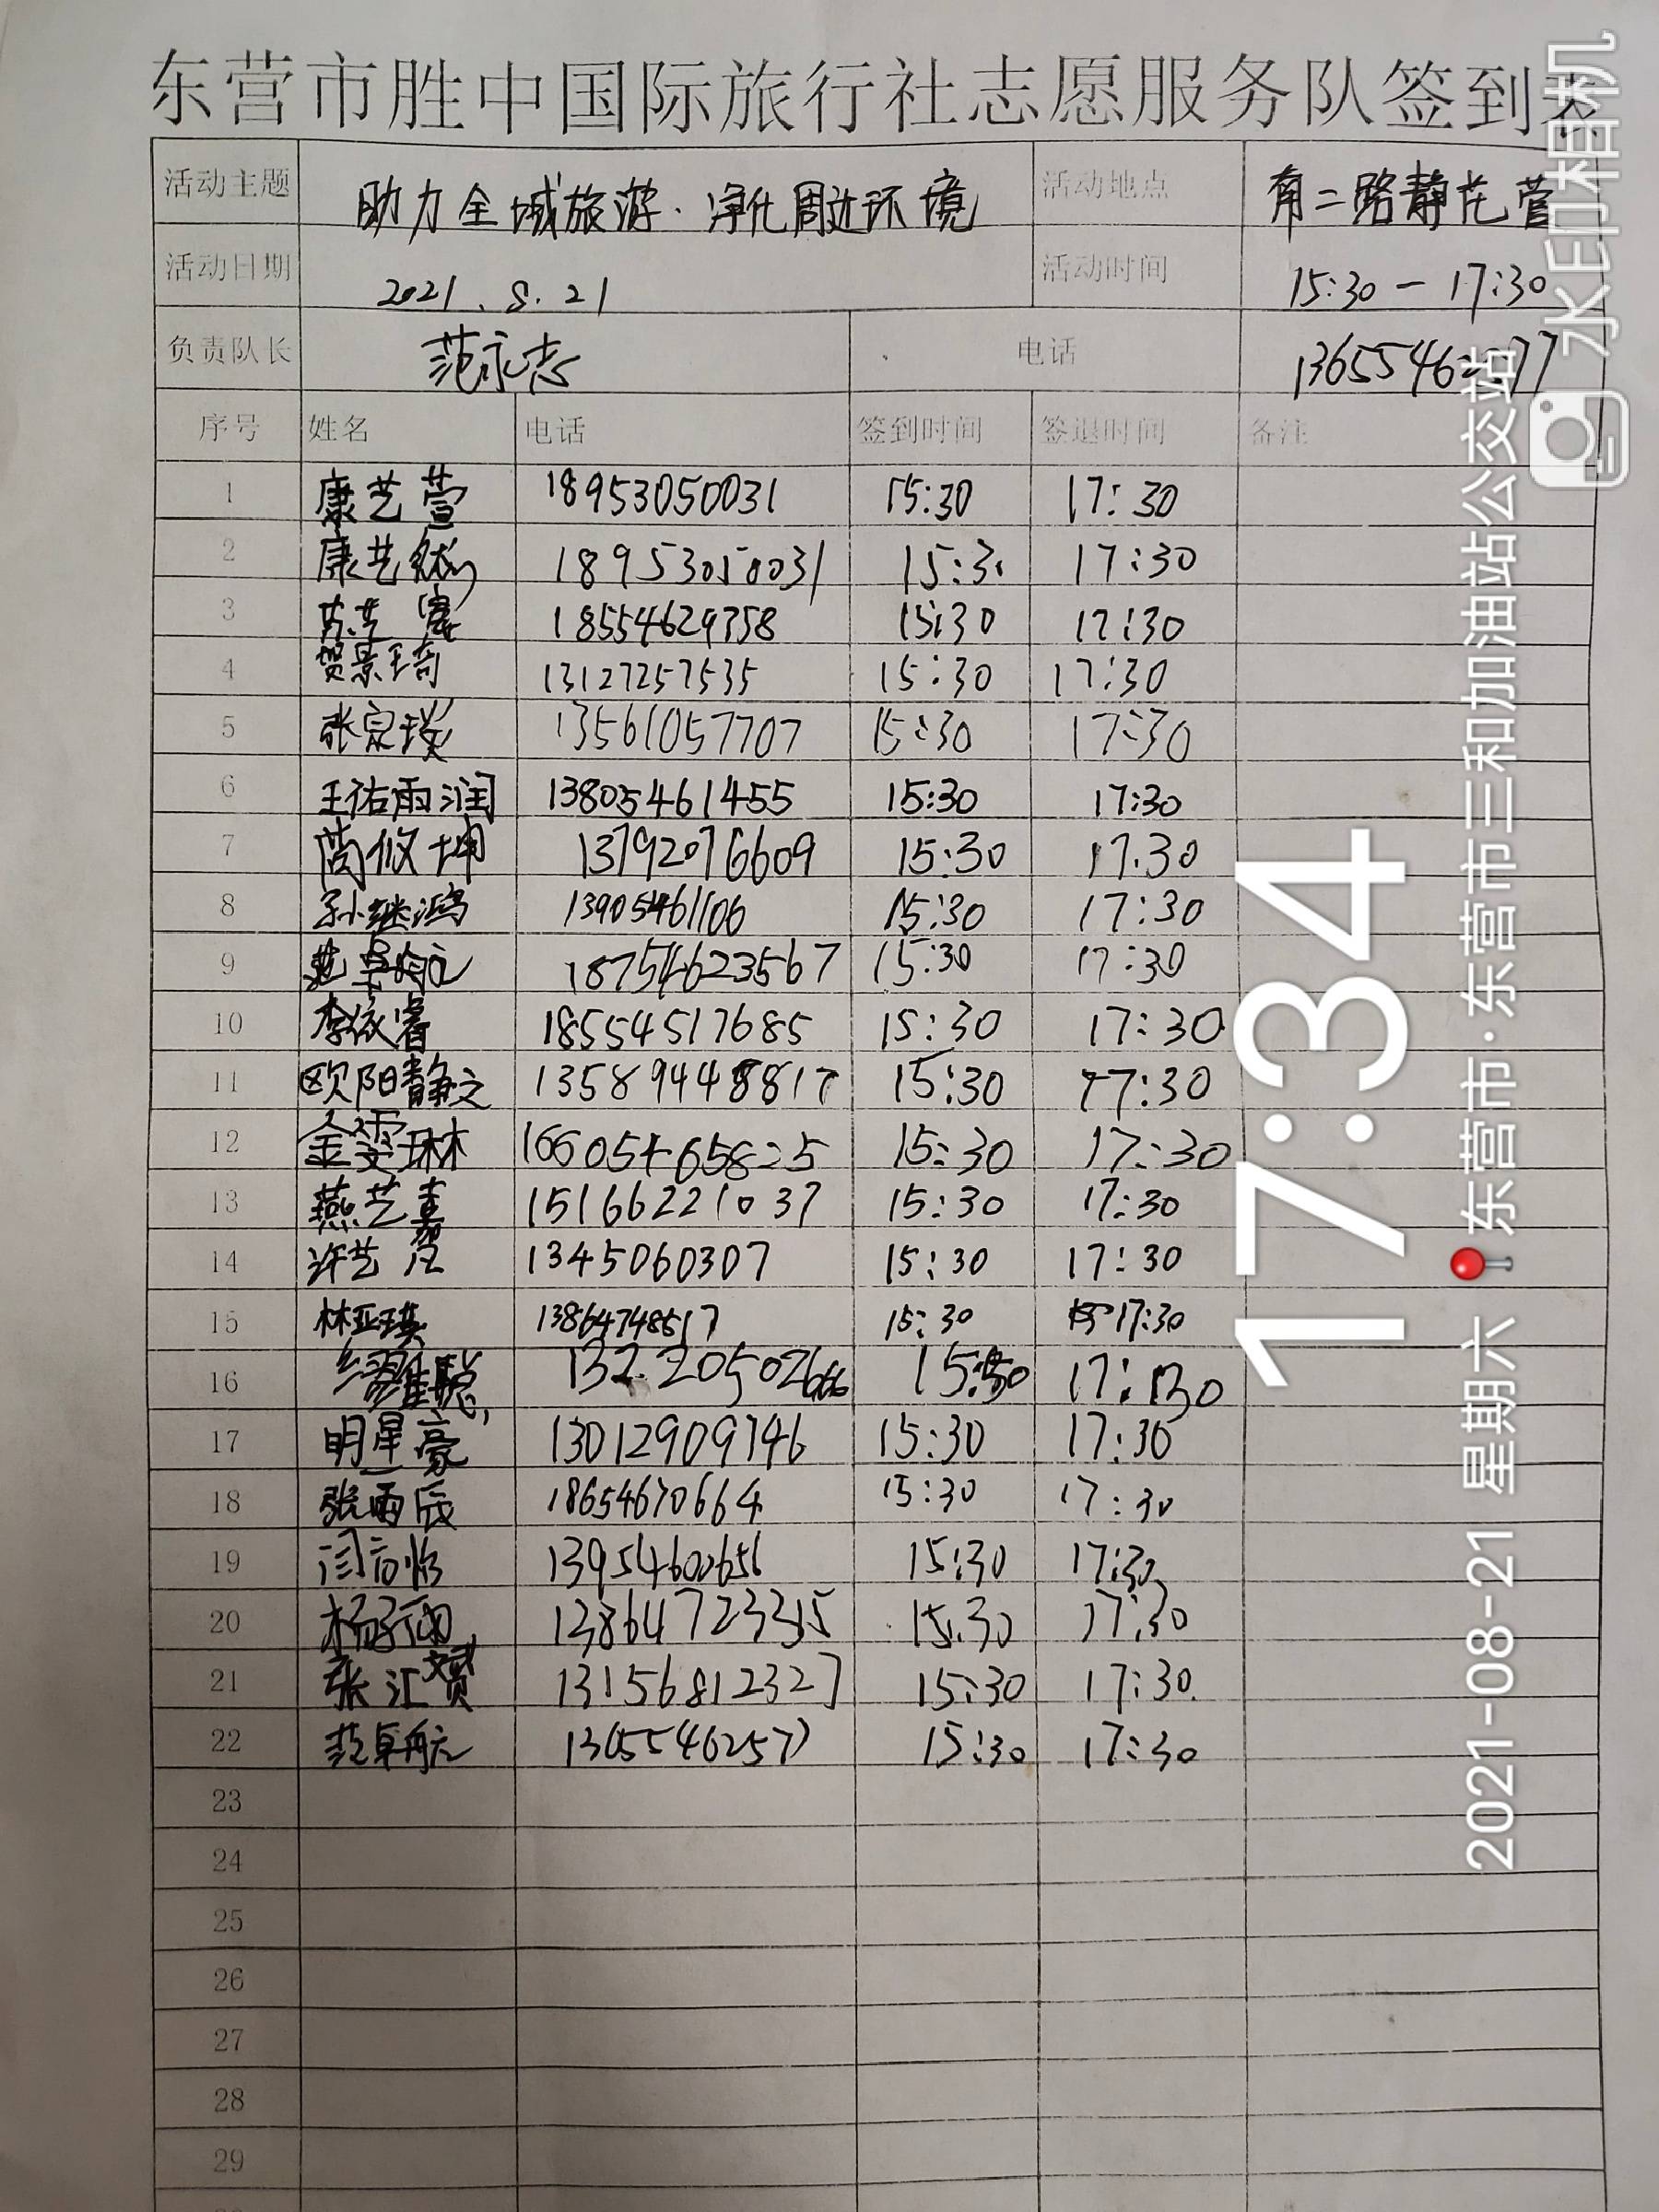 东营市胜中国际旅行社志愿服务队签到表
活动主题 助力全域旅游·净化周边环境 活动地点 南二路静花营
活动日期 2021.8.21 活动时间 15:30-17:30
负责队长 范永志 电话 13655462577
序号 姓名 电话 签到时间 签退时间 备注
1 康艺萱 18953050031 15:30 17:30
2 康艺然 18953050031 15:30 17:30
3 18554629358 15:30 17:30
4 贺景琦 13127257535 15:30 17:30
5 张宸瑛 13561057707 15:30 17:30
6 王祐雨润 13805461455 15:30 17:30
7 攸坤 13792076609 15:30 17.30
8 孙继鸿 13905461106 15:30 17:30
9 18754623567 15:30 17:30
10 李依睿 18554517685 15:30 17:30
11 欧阳静文 13589448817 15:30 17:30
12 金雯琳 16605465825 15:30 17:30
13 燕艺嘉 15166221037 15:30 17:30
14 许艺 1345060307 15:30 17:30
15 林亚琪 13864748517 15:30 17:30
16 15:30 17:30
17 明星豪 13012909746 15:30 17:30
18 张雨辰 18654670664 15:30 17:30
19 闫 13954600656 15:30 17:30
20 杨子雨 13864723315 15.30 17:30
21 张汇赟 13156812327 15:30 17:30
22 范卓航 13655462577 15:30 17:30
23
24
25
26
27
28
29
水印相机
17:34
东营市·东营市三和加油站公交站
2021-08-21 星期六